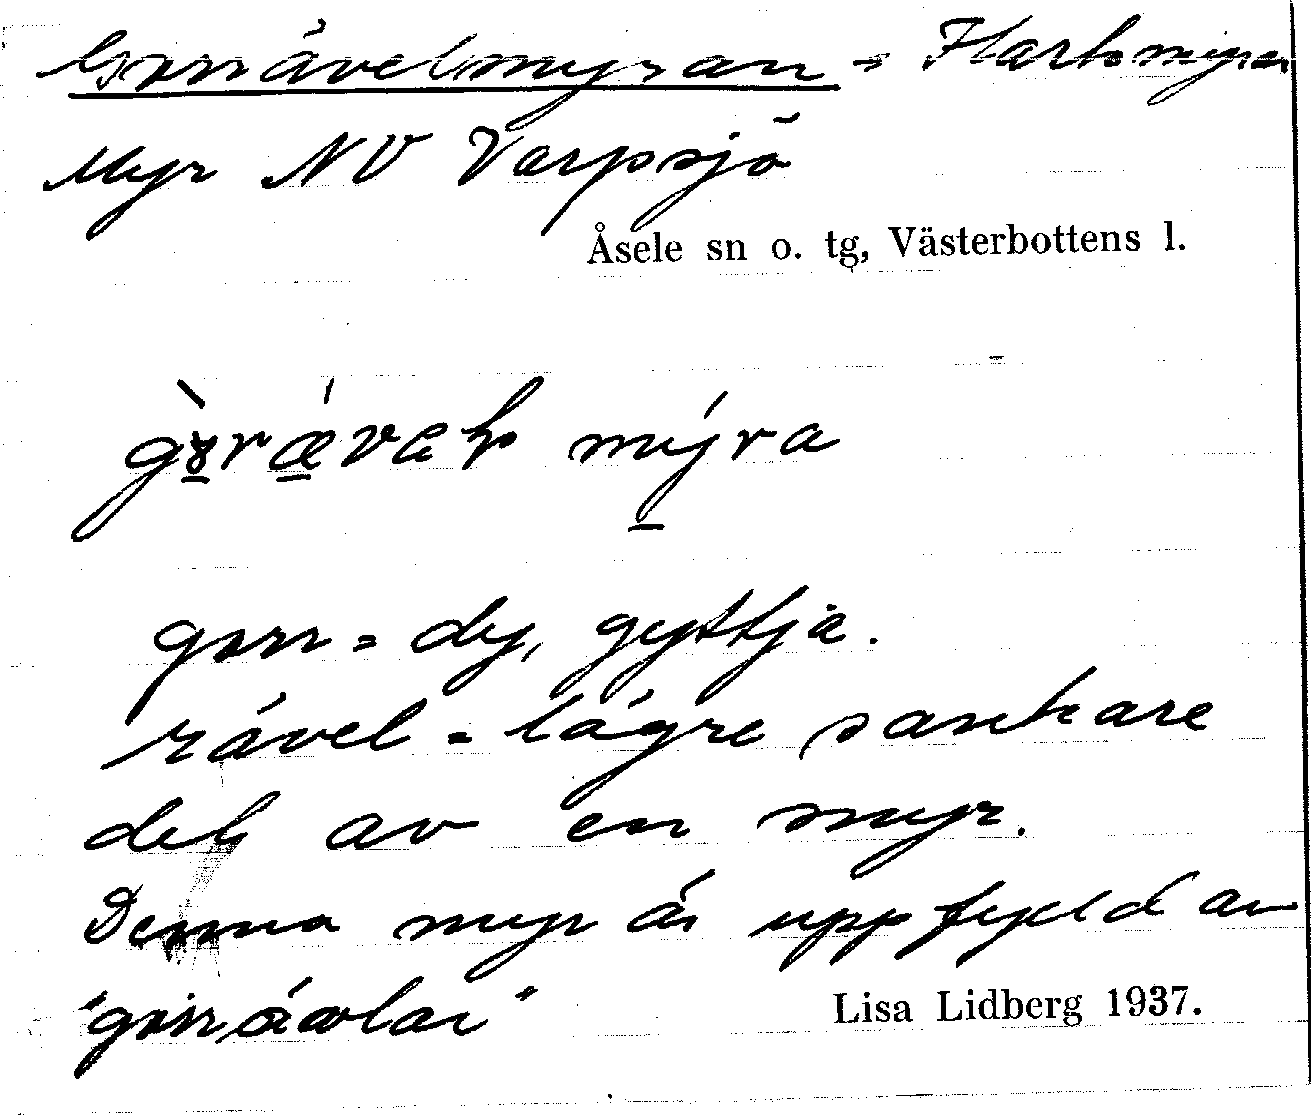 Gorrävelmyran = Harkmyran
Myr NV Varpsjö
Åsele sn o. tg, Västerbottens l.
myra
gorr = dy, gyttja.
rävel = lägre sankare
del av en myr.
Denna myr är uppfylld av
"gorrävlar"
Lisa Lidberg 1937.